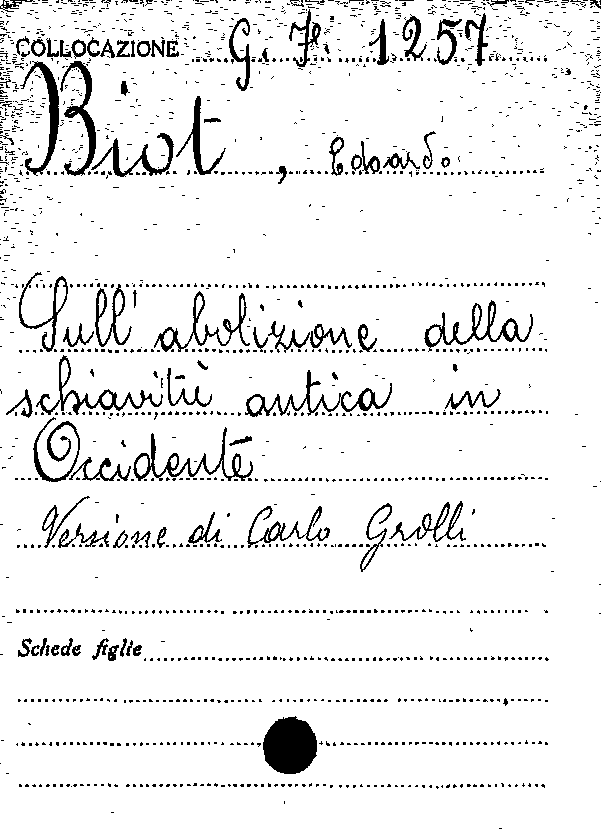 COLLOCAZIONE G. F. 1257
Biot, Edoardo
Sull'abolizione della
schiavitù antica in
Occidente
Versione di Carlo Grolli
Schede figlie